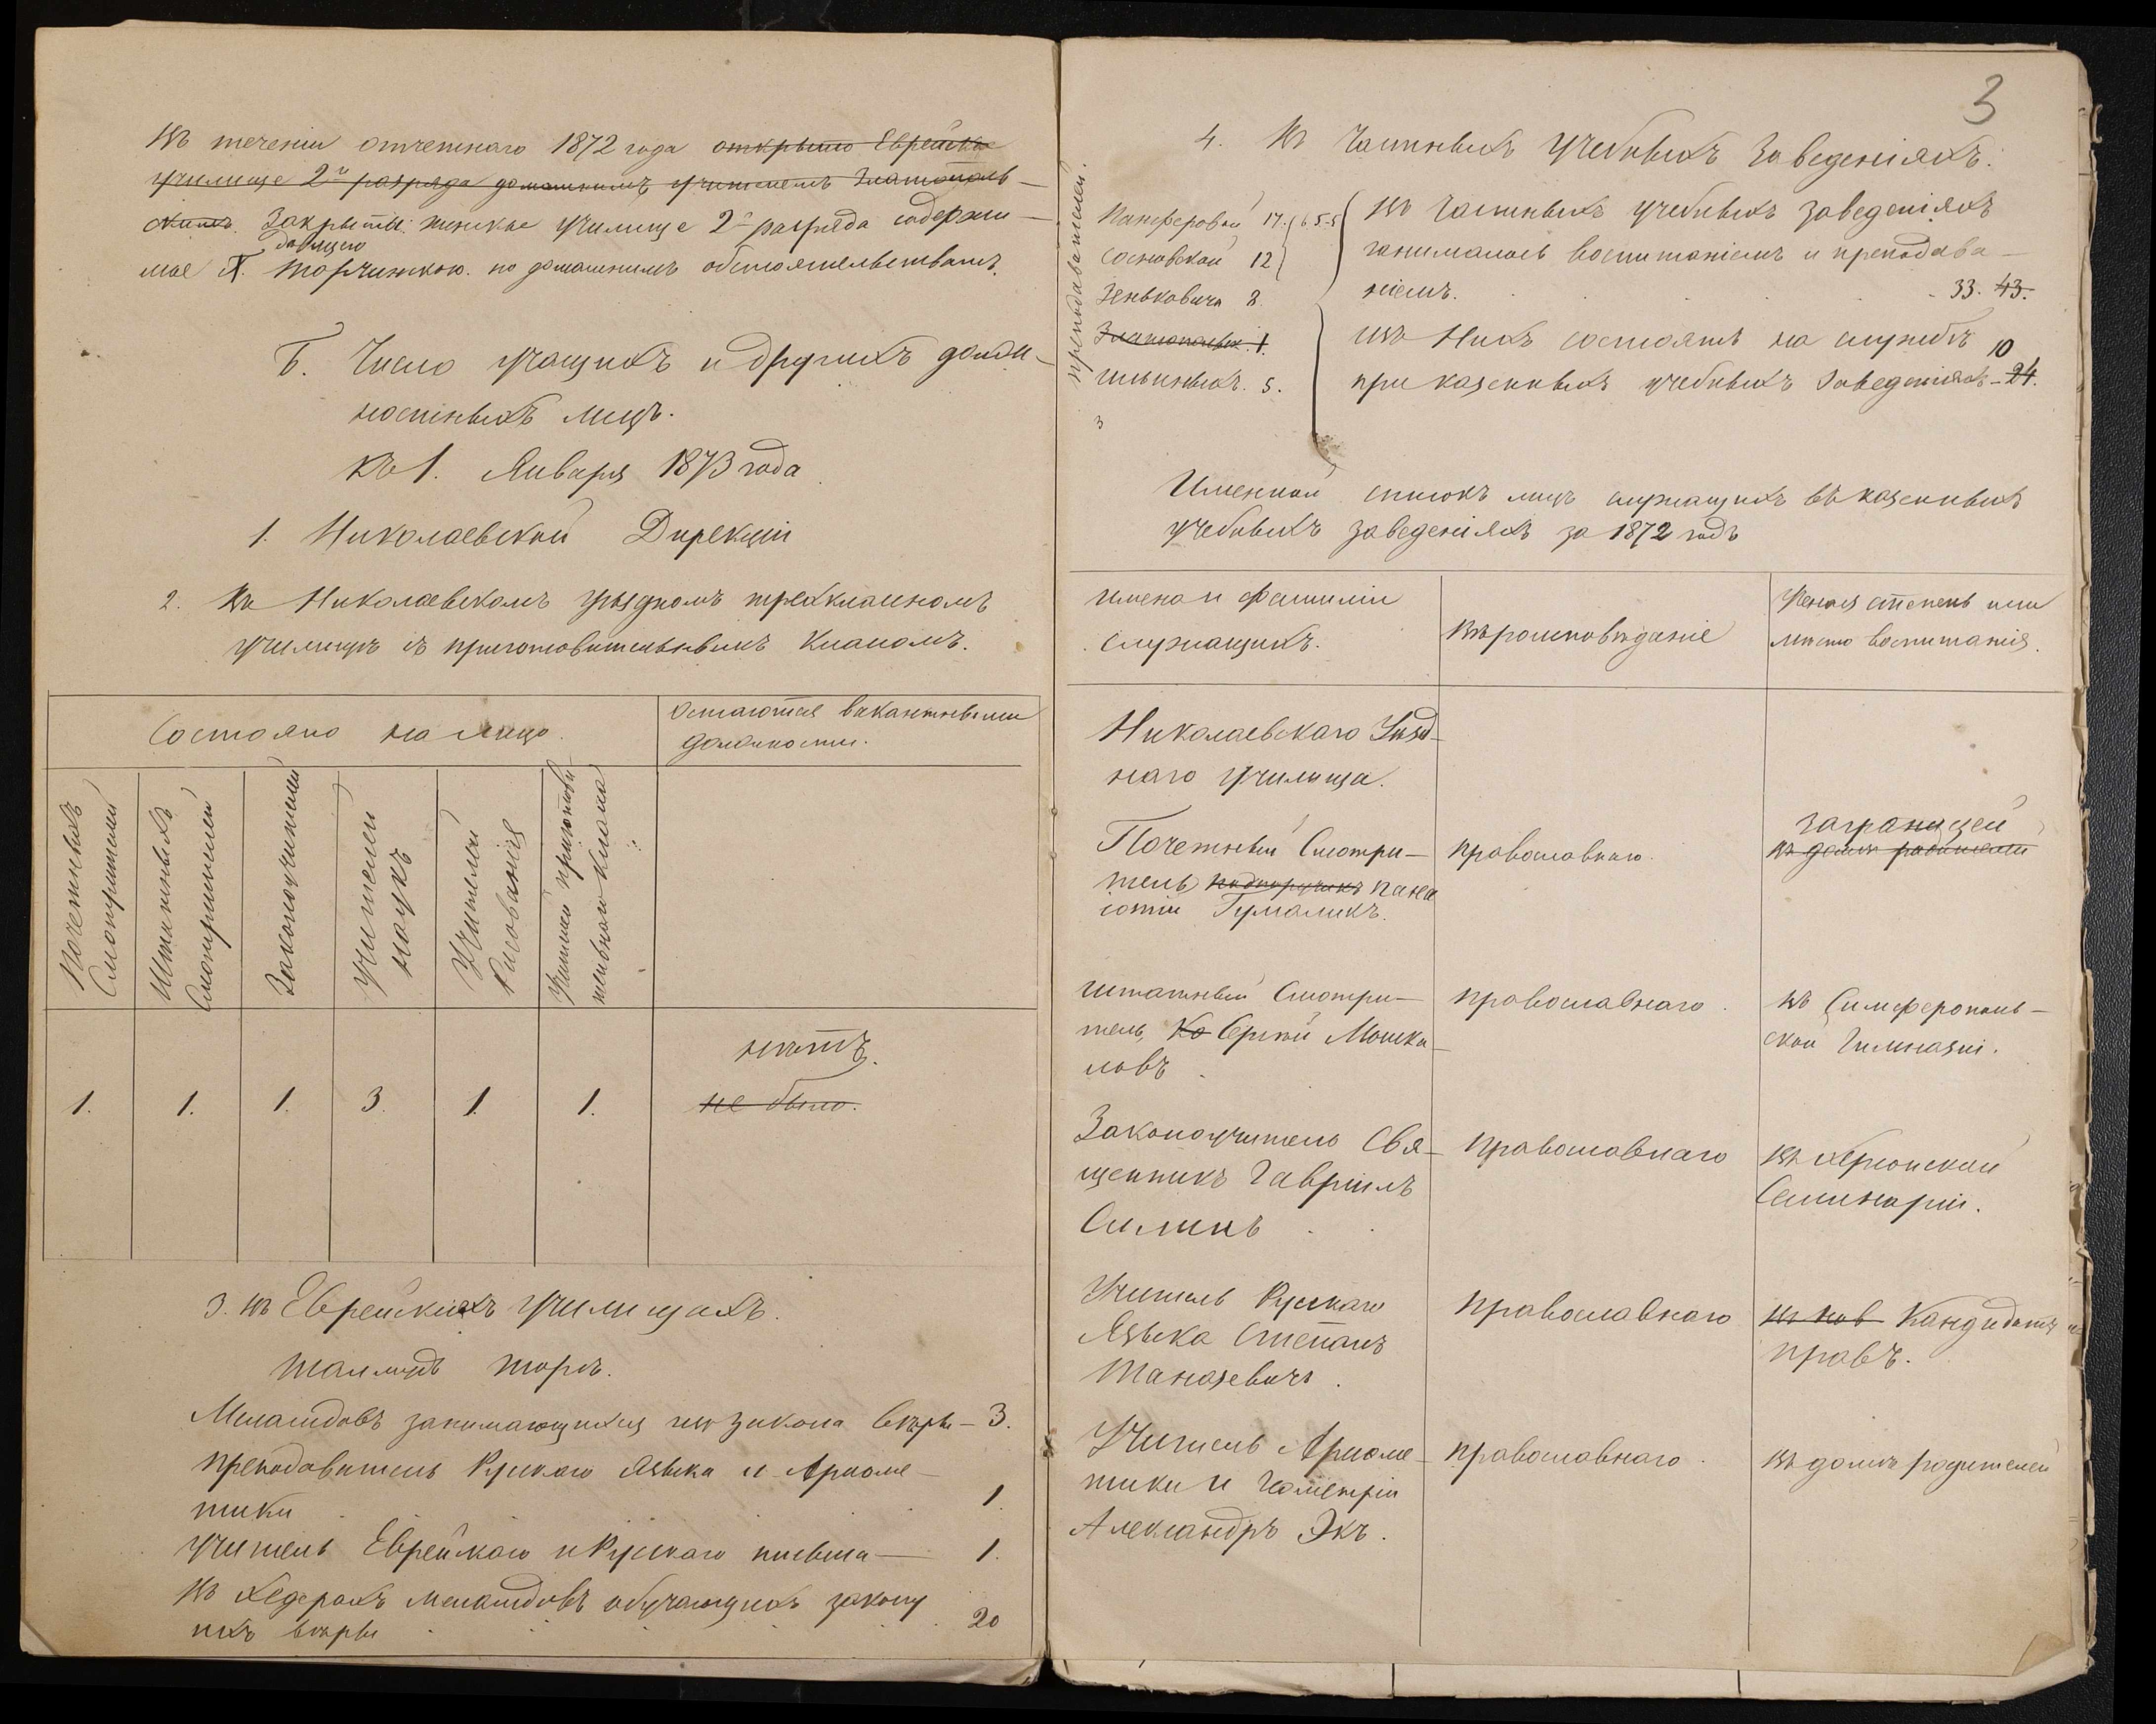 Въ теченіи отчетнаго 1872 года открыто Еврейское
училище 2го разряда домашнимъ учителемъ Златополь—
скимъ. Закрыты: женское училище 2го разряда содержи—
давшего
мое Г. Торчинскою. по домашнимъ обстоятельствамъ.
Б. Число учащихъ и другихъ долж—
ностныхъ лицъ.
къ 1. Января 1873 года
1. Николаевской Дирекціи
2. Въ Николаевскомъ уѣздномъ трехклассномъ
училищѣ съ приготовительнымъ классомъ.
Состояло на лицо.
Остаются вакантными
должности.
Почетныхъ
Смотрителей
Штатныхъ
Смотрителей
Законоучителей
Учителей
наукъ
Учителей
Рисованія
Учителей приготови
тельнаго класса
нѣтъ.
1. 1. 1. 3. 1. 1. не было.
3. въ Еврейскихъ училищахъ.
Талмудъ торѣ.
Меламдовъ занимающихся изъ закона вѣры — 3.
преподаватель Русскаго языка и Ариѳме—
тики 1.
учитель Еврейскаго и Русскаго письма — 1.
Въ хедерахъ меламдовъ обучающихъ закону
ихъ вѣры 20
3
4. Въ Частныхъ учебныхъ заведеніяхъ.
преподавателей.
Панферовой 17.
Сосновской 12
Зеньковича 8.
Златопольск. 1.
Ильиныхъ. 5.
3
Въ частныхъ учебныхъ заведеніяхъ
занималось воспитаніемъ и преподава—
ніемъ. 33. 43.
изъ нихъ состоятъ на службѣ
10
при казенныхъ учебныхъ заведеніяхъ — 24.
Именной списокъ лицъ служащихъ въ казенныхъ
учебныхъ заведеніяхъ за 1872 годъ
Имена и фамиліи
служащихъ.
Вѣроисповѣданіе
Ученая степень или
мѣсто воспитанія.
Николаевскаго Уѣзд—
наго училища.
Почетный Смотри—
тель подпоручикъ Пана
іотій Гумаликъ.
православнаго.
заграницей
въ домѣ родителей
Штатный Смотри—
тель, Ко Сергѣй Мошка—
ловъ
православнаго.
въ Симферополь—
ской Гимназіи.
Законоучитель Свя—
щенникъ Гавріилъ
Силинъ
Православнаго
въ Херсонской
Семинаріи.
Учитель Русскаго
Языка Степанъ
Таназевичъ.
Православнаго
въ нов Кандидатъ
правъ.
Учитель Ариѳме—
тики и Геометріи
Александръ Экъ.
православнаго.
въ домѣ родителей